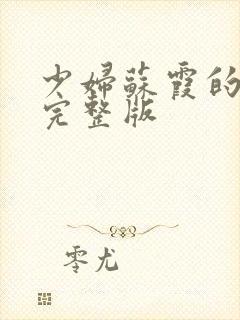 少婦蘇霞的
完整版
零尤